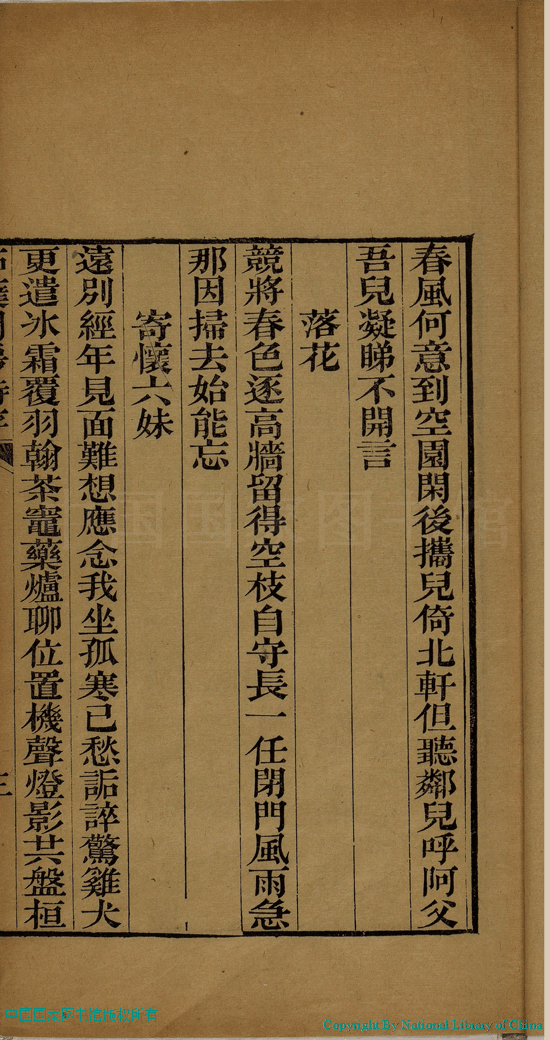 春風何意到空園閑後攜兒倚北軒但聽鄰兒呼阿父
吾兒凝睇不開言
落花
競將春色逐高牆留得空枝自守長一任閉門風雨急
那因掃去始能忘
寄懷六妹
遠別經年見面難想應念我坐孤寒已愁詬誶驚雞犬
更遣冰霜覆羽翰茶竈藥爐聊位置機聲燈影共盤桓
中国国家图书馆版权所有
Copyright By National Library of China